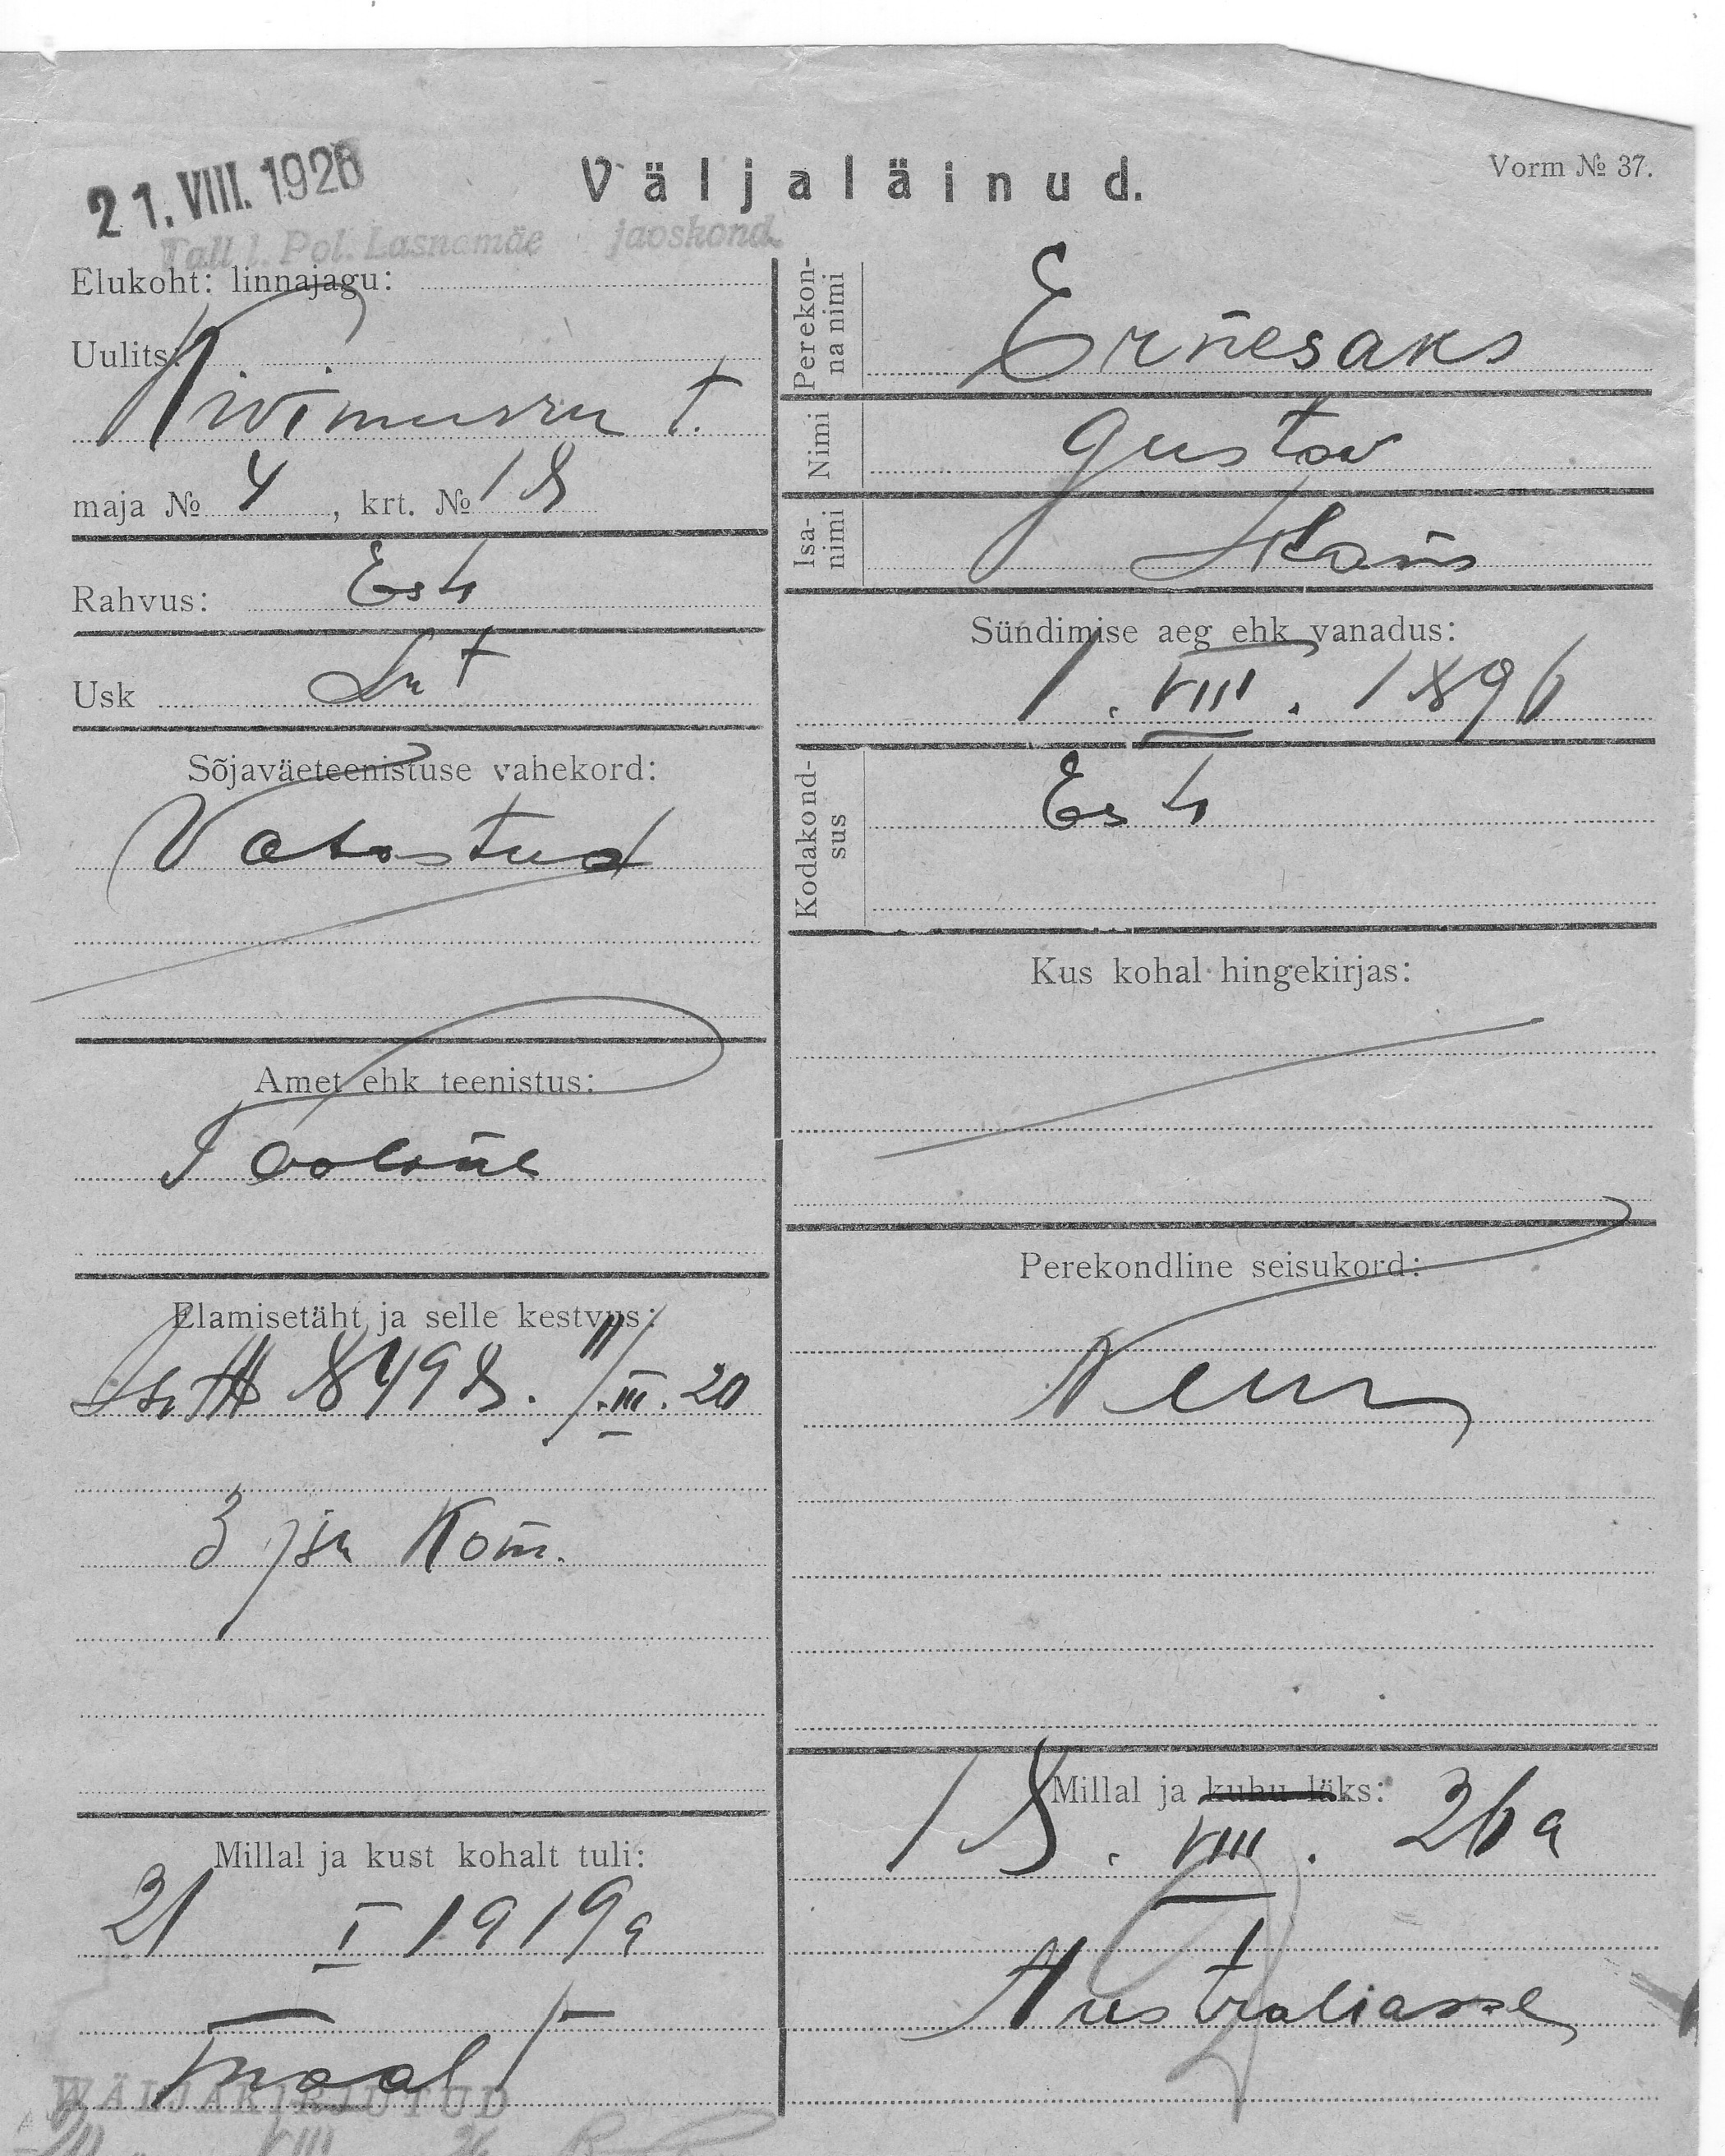 21. VIII. 1926
Väljaläinud.
Vorm № 37.
Tall. l. Pol. Lasnamäe jaoskond.
Elukoht: linnajagu:
Uulits:
Kivimurru t.
maja № 4, krt. № 18
Rahvus: Est
Usk Lut
Sõjaväeteenistuse vahekord:
Vabastud
Amet ehk teenistus:
Tööline
Elamisetäht ja selle kestvus:
8498. III. 20
3 jsk Kom.
Millal ja kust kohalt tuli:
21 I 1919 a
maalt
WÄLJAKIRJUTUD
VIII 26
Perekonna nimi
Ernesaks
Nimi
Gustav
Isanimi
Hans
Sündimise aeg ehk vanadus:
1. VIII. 1896
Kodakondsus
Est
Kus kohal hingekirjas:
Perekondline seisukord:
Millal ja kuhu läks:
18. VIII. 26 a
Australiasse